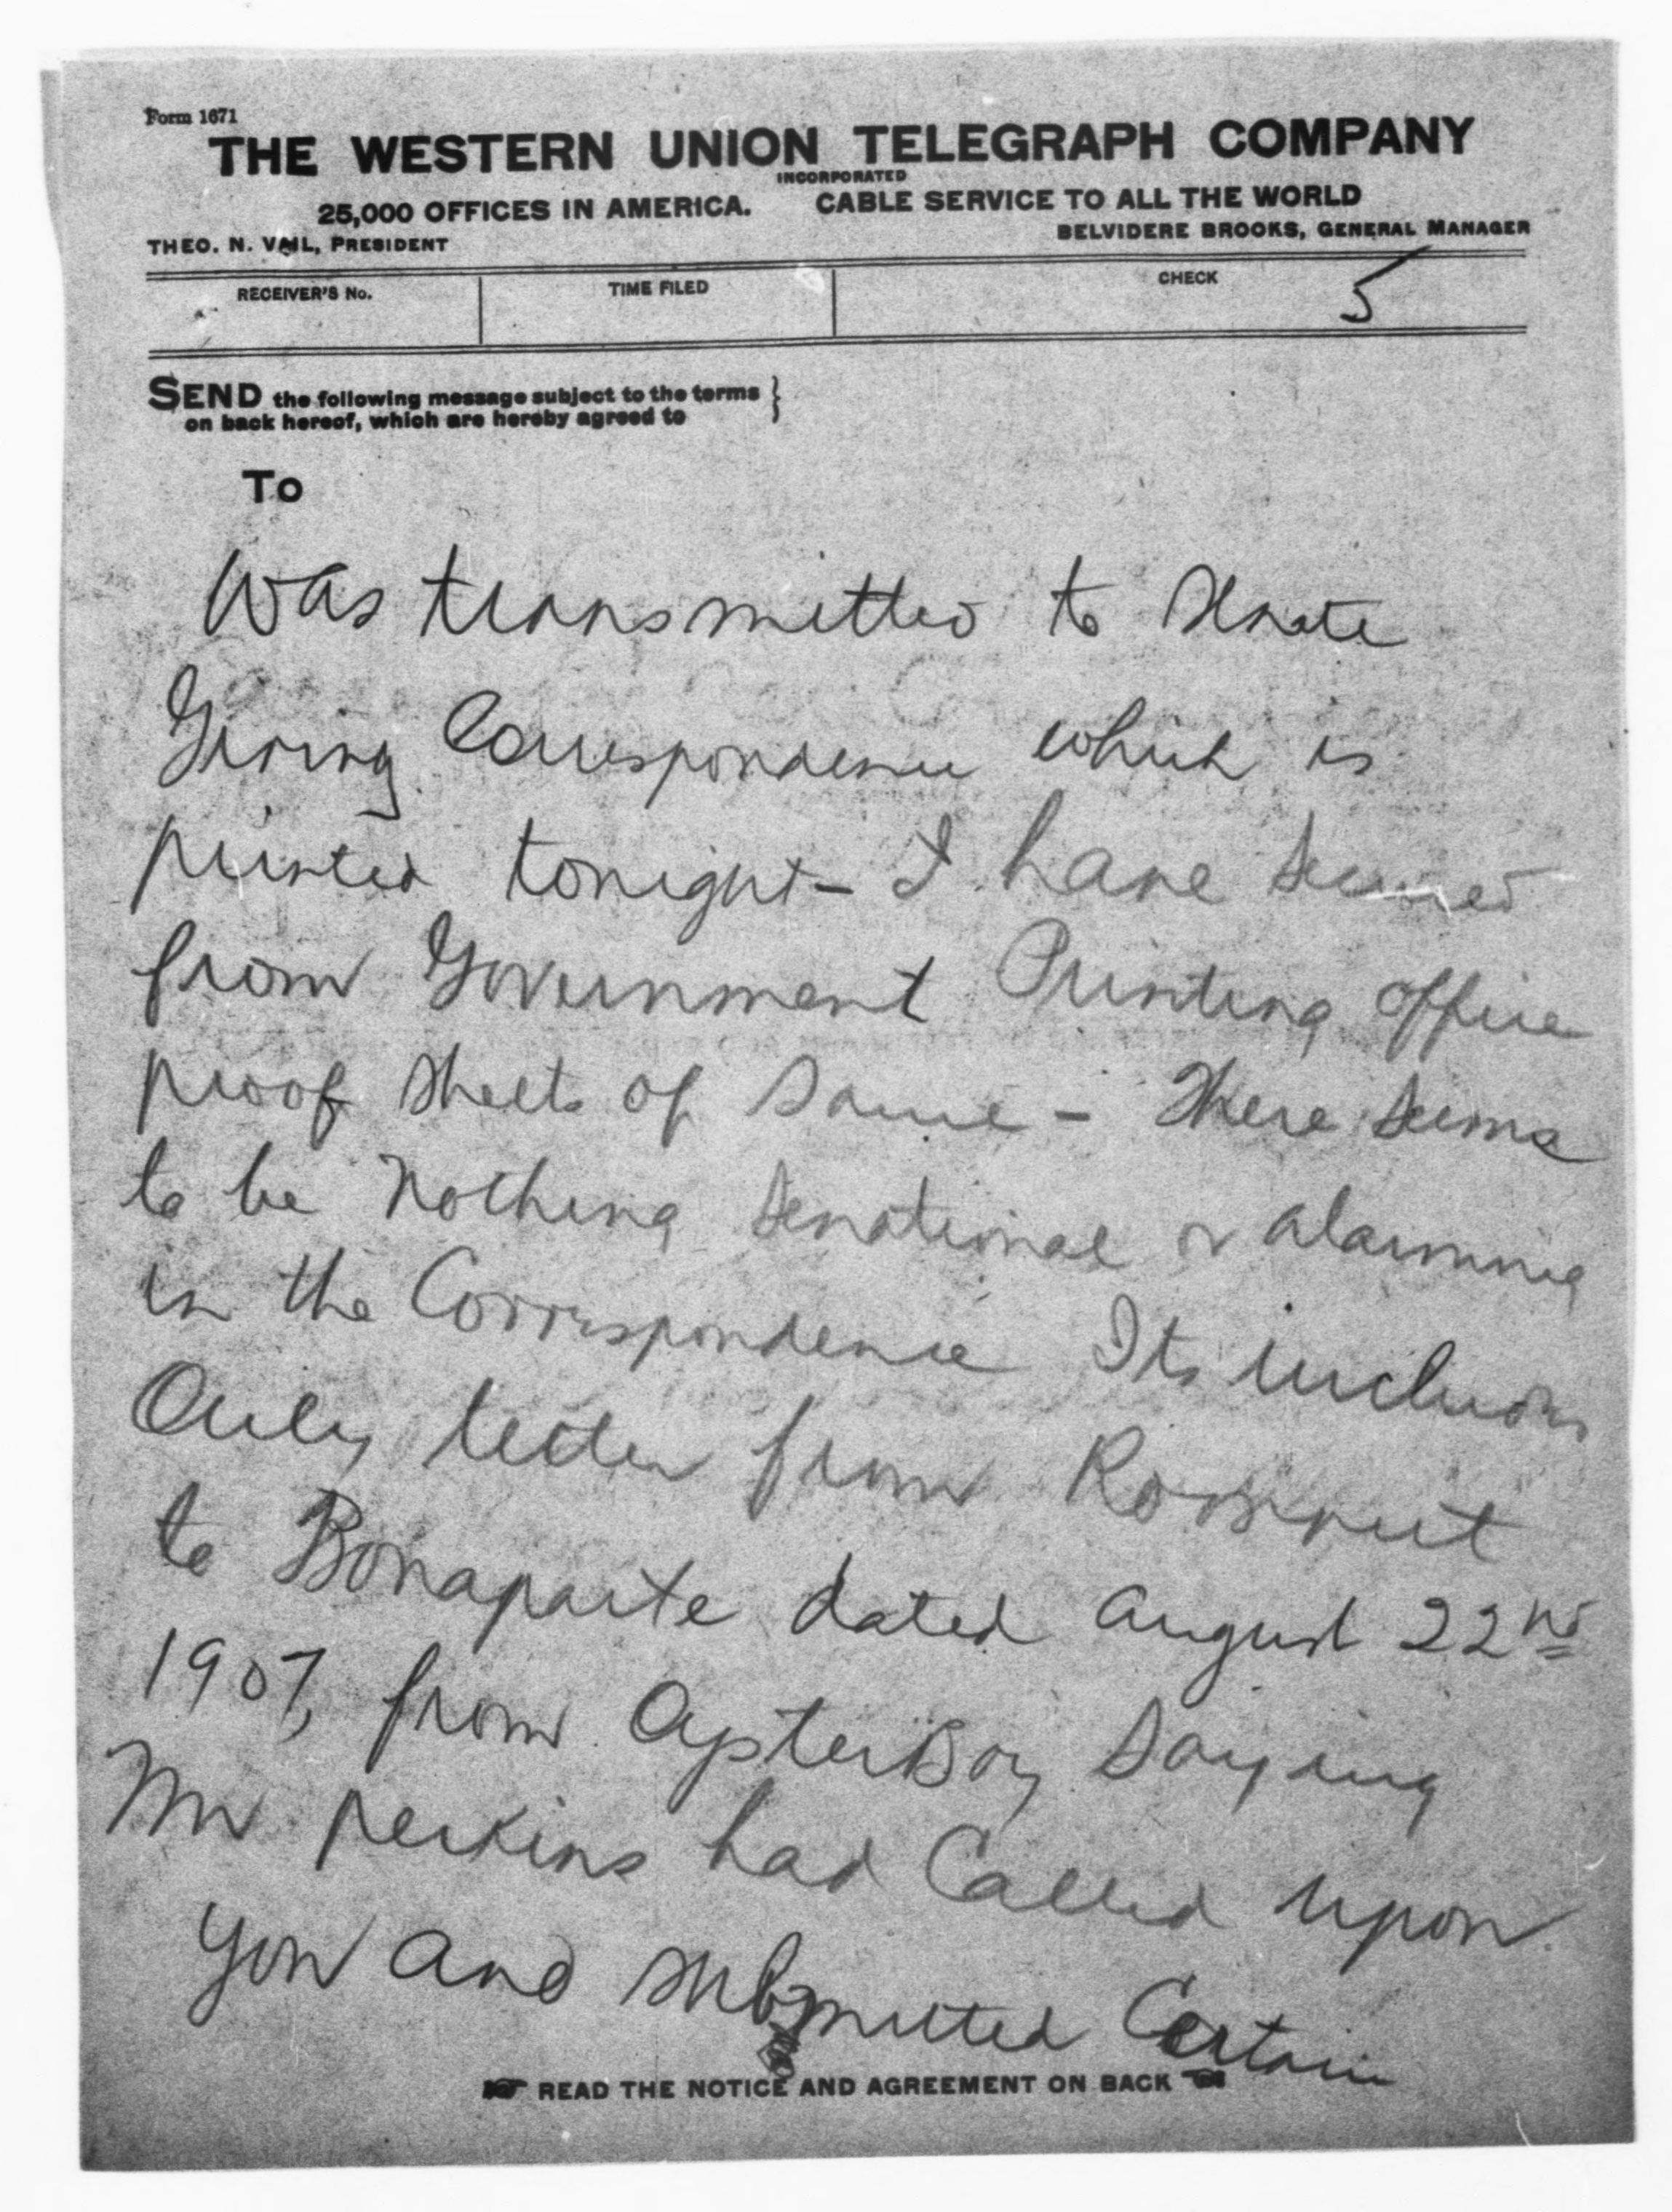 Form 1671
THE WESTERN UNION TELEGRAPH COMPANY
INCORPORATED
25,000 OFFICES IN AMERICA. CABLE SERVICE TO ALL THE WORLD
THEO. N. VAIL, PRESIDENT BELVIDERE BROOKS, GENERAL MANAGER
RECEIVER'S No. TIME FILED CHECK 5
SEND the following message subject to the terms
on back hereof, which are hereby agreed to
To
Was transmitted to Senate
Giving Correspondence which is
printed tonight – I have secured
from Government Printing office
proof sheets of same – There seems
to be Nothing senational or alarming
in the Correspondence Its includes
Only letter from Roosevelt
to Bonaparte dated August 22nd
1907, from OysterBay saying
Mr perkins had Called upon
you and submitted Certain
READ THE NOTICE AND AGREEMENT ON BACK